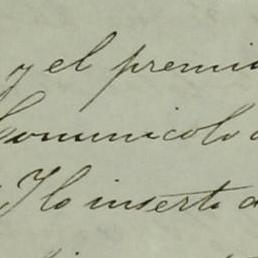 y el premi
Comunicolo a
Y lo inserto a